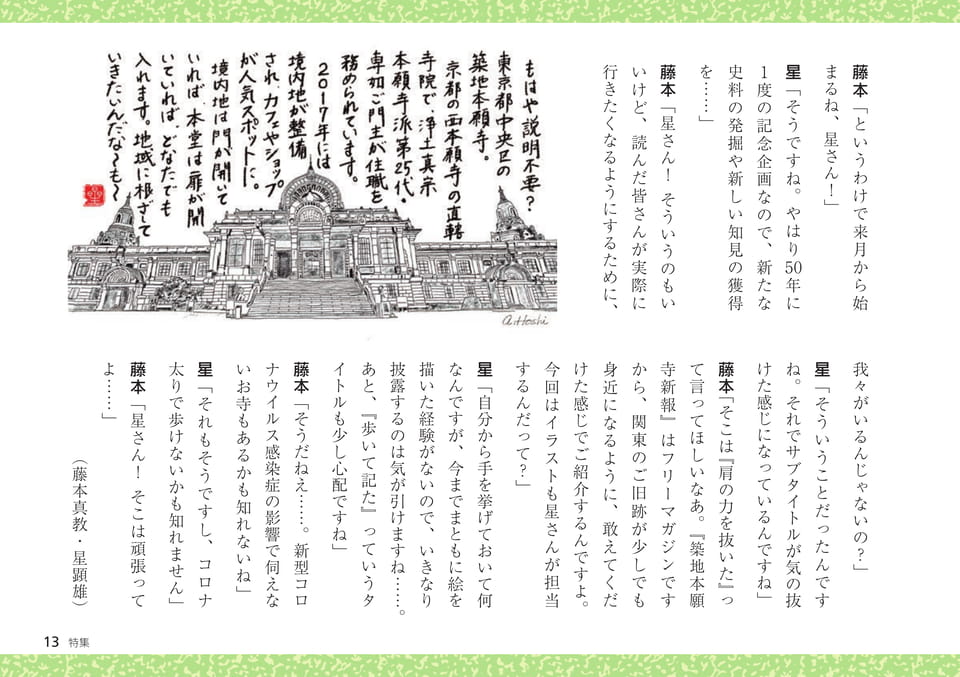 藤本「というわけで来月から始
まるね、星さん！」
星「そうですね。やはり50年に
1度の記念企画なので、新たな
史料の発掘や新しい知見の獲得
を……」
藤本「星さん！　そういうのもい
いけど、読んだ皆さんが実際に
行きたくなるようにするために、
もはや説明不要？
東京都中央区の
築地本願寺。
京都の西本願寺の直轄
寺院で、浄土真宗
本願寺派第25代・
専如ご門主が住職を
務められています。
2017年には
境内地が整備
され、カフェやショップ
が人気スポットに。
境内地は門が開いて
いれば、本堂は扉が開
いていれば、どなたでも
入れます。地域に根ざして
いきたいんだな〜も〜
a.Hoshi
我々がいるんじゃないの？」
星「そういうことだったんです
ね。それでサブタイトルが気の抜
けた感じになっているんですね」
藤本「そこは『肩の力を抜いた』っ
て言ってほしいなあ。『築地本願
寺新報』はフリーマガジンです
から、関東のご旧跡が少しでも
身近になるように、敢えてくだ
けた感じでご紹介するんですよ。
今回はイラストも星さんが担当
するんだって？」
星「自分から手を挙げておいて何
なんですが、今までまともに絵を
描いた経験がないので、いきなり
披露するのは気が引けますね……。
あと、『歩いて記た』っていうタ
イトルも少し心配ですね」
藤本「そうだねえ……。新型コロ
ナウイルス感染症の影響で伺えな
いお寺もあるかも知れないね」
星「それもそうですし、コロナ
太りで歩けないかも知れません」
藤本「星さん！　そこは頑張って
よ……」
（藤本真教・星顕雄）
13 特集